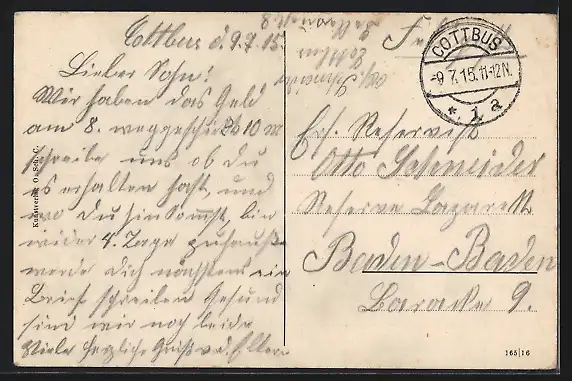 Cottbus d. 9.7.15.
Lieber Sohn!
Wir haben das Geld
am 8. weggeschickt 10 M
schreibe uns ob du
es erhalten hast, und
wo du hin kommst, bin
wider 4. Tage zuhause
werde dich nächstens ein
Brief schreiben Gesund
sind wir noch beide
Viele herzliche Grüße v. d. Eltern
Kunstverlag O. Sch. C.
Abs. Schneider
Cottbus
8
COTTBUS
-9.7.15.11-12N.
* 1 a
Ers. Reservist
Otto Schneider
Reserve Lazarett
Baden-Baden
Baracke 9.
165|16